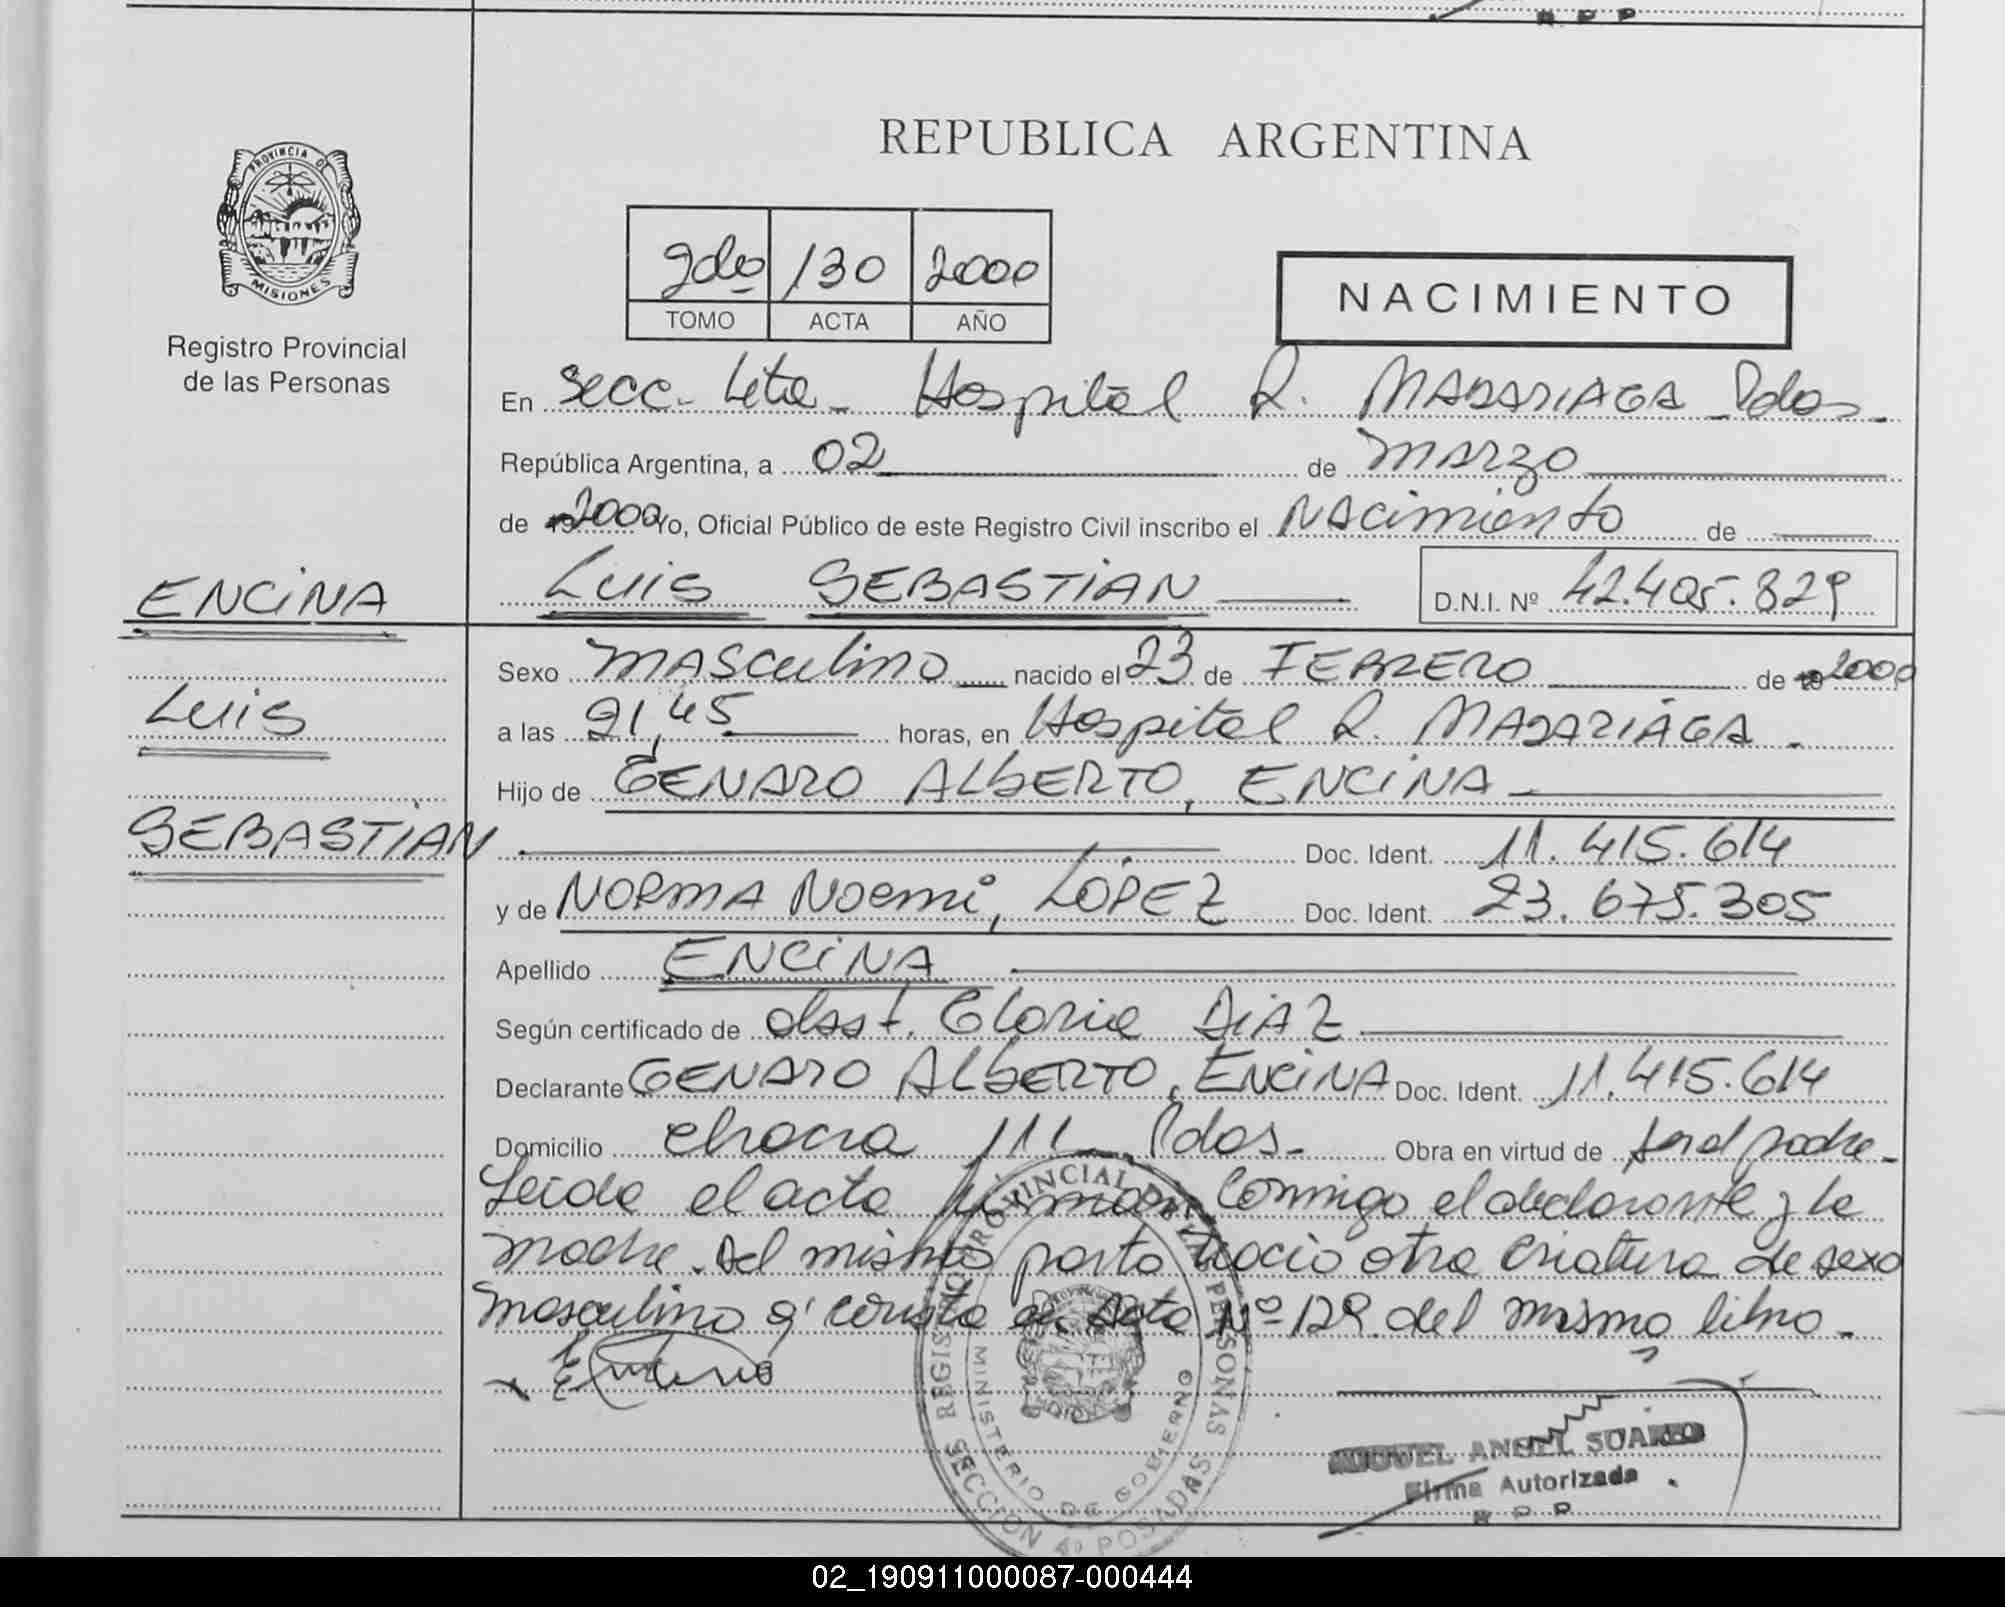 R P P
REPUBLICA ARGENTINA
PROVINCIA DE
MISIONES
Registro Provincial
de las Personas
2do 130 2000
TOMO ACTA AÑO
NACIMIENTO
En Secc. 4ta - Hospital R. MADARIAGA - Pdas -
República Argentina, a 02 de MARZO
de 2000 Yo, Oficial Público de este Registro Civil inscribo el NACimiento de
LUIS SEBASTIAN D.N.I. Nº 42.405.829
ENCINA
LUIS
SEBASTIAN
Sexo MASCulino nacido el 23 de FEBRERO de 19 2000
a las 21,45 horas, en Hospital R. MADARIAGA -
Hijo de GENARO ALBERTO, ENCINA
Doc. Ident. 11.415.614
y de NORMA Noemi, LOPEZ Doc. Ident. 23.675.305
Apellido ENCINA
Según certificado de obst. Gloria DIAZ
Declarante GENARO ALBERTO, ENCINA Doc. Ident. 11.415.614
Domicilio chacra Pdas - Obra en virtud de ser el padre -
Leida el acta firman conmigo el declarante y la
madre. Del mismo parto nacio otra criatura de sexo
masculino q' consta en Acta Nº 129 del mismo libro -
REGISTRO PROVINCIAL DE LAS PERSONAS
MINISTERIO DE GOBIERNO
SECCION 4ª POSADAS
MIGUEL ANGEL SUAREZ
Firma Autorizada
R P P
02_190911000087-000444